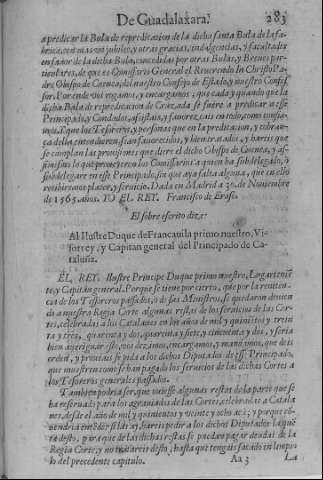 De Guadalaxara. 283
a predicar la Bula de repredicacion de la dicha santa Bula de la fa-
brica, con mas un jubileo, y otras gracias, indulgencias, y facultades
en favor de la dicha Bula, concedidas por otras Bulas, y Breves par-
ticulares, de que es Comissario General el Reverendo In Christo Pa-
dre Obispo de Cuenca, del nuestro Consejo de Estado, y nuestro Confes-
sor. Por ende vos rogamos, y encargamos, que cada y quando que la
dicha Bula de repredicacion de Cruzada se fuere a predicar a esse
Principado, y Condados, assistais, y favorezcais en todo, como confia-
mos, y que los Tesoreros, y personas que en la predicacion, y cobran-
ça della entendieren, sean favorecidos, y bien tratados, y hareis que
se cumplan las provisiones que diere el dicho Obispo de Cuenca, y as-
simismo lo que proveyeren los Comissarios a quien ha subdelegado, ò
subdelegare en esse Principado, sin que aya falta alguna, que en ello
recibiremos placer, y servicio. Dada en Madrid a 30. de Noviembre
de 1565. años. YO EL REY. Francisco de Eraso.
El sobre escrito dize:
Al Ilustre Duque de Francavila primo nuestro, Vi-
sorrey, y Capitan general del Principado de Ca-
taluña.
EL REY. Ilustre Principe Duque primo nuestro, Lugartenien-
te, y Capitan general. Porque se tiene por cierto, que por la renitencia
de los Tesoreros passados, ò de sus Ministros, se quedaron deviendo
a nuestra Regia Corte algunas restas de los servicios de las Cor-
tes, celebradas a los Catalanes en los años de mil y quinientos y trein-
ta y tres, quarenta y dos, quarenta y siete, y cinquenta y dos, y seria
bien averiguar esto, nos dezimos, encargamos, y mandamos, que deis
orden, y proveais se pida a los dichos Diputados de esse Principado,
que muestren como se han pagado los servicios de las dichas Cortes a
los Tesoreros generales passados.
Tambien podria ser, que huviesse algunas restas de la parte que se
ha reservado para los agraviados de las Cortes, celebradas a Catala-
nes, desde el año de mil y quinientos y veinte y ocho acà; y porque
en
hareis pedir a los dichos Diputados la quen-
ta desto, para que de las dichas restas se puedan pagar deudas de la
Regia Corte, y no tratareis desto, hasta que tengais sacado en limpio
lo del precedente capitulo. Aa 3 La